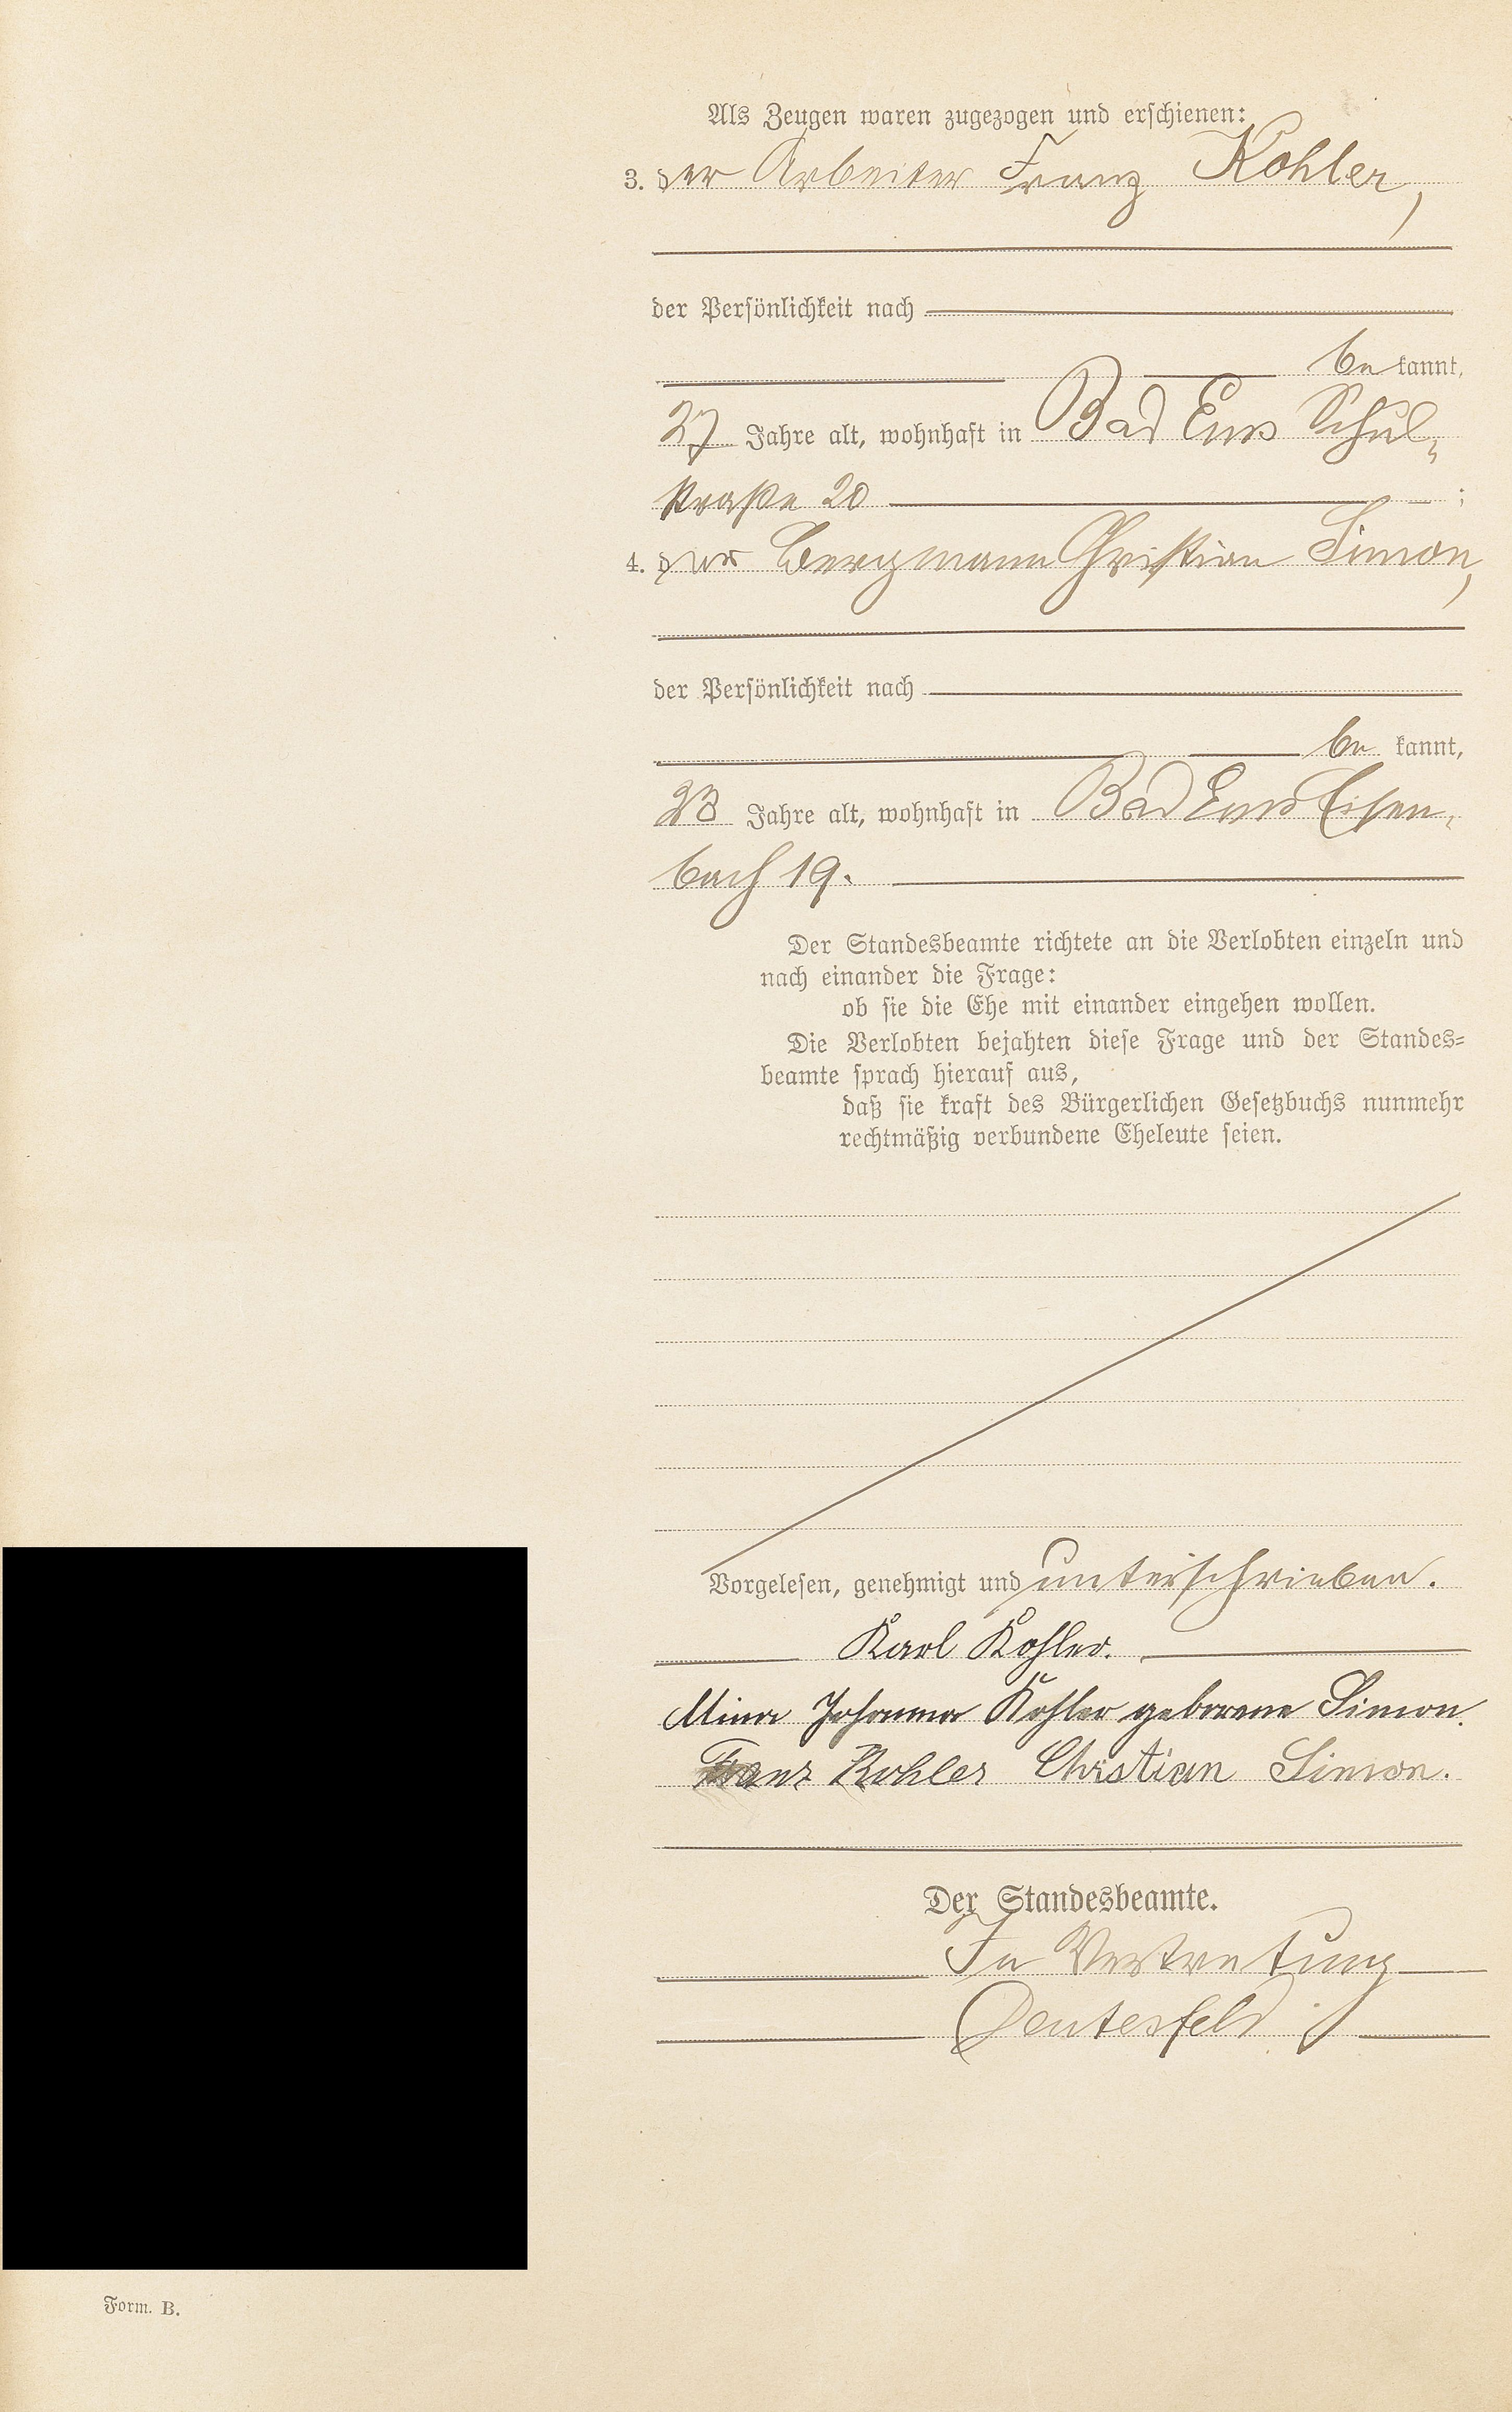 Als Zeugen waren zugezogen und erschienen:
3. der Arbeiter Franz Kohler,
der Persönlichkeit nach
be kannt,
27 Jahre alt, wohnhaft in Bad Ems Schul-
straße 20 ;
4. der Bergmann Christian Simon,
der Persönlichkeit nach
be kannt,
23 Jahre alt, wohnhaft in Bad Ems Eisen-
bach 19.
Der Standesbeamte richtete an die Verlobten einzeln und
nach einander die Frage:
ob sie die Ehe mit einander eingehen wollen.
Die Verlobten bejahten diese Frage und der Standes=
beamte sprach hierauf aus,
daß sie kraft des Bürgerlichen Gesetzbuchs nunmehr
rechtmäßig verbundene Eheleute seien.
Vorgelesen, genehmigt und unterschrieben.
Karl Kohler.
Mina Johanna Kohler geborene Simon.
Franz Kohler Christian Simon.
Der Standesbeamte.
In Vertretung
Form. B.